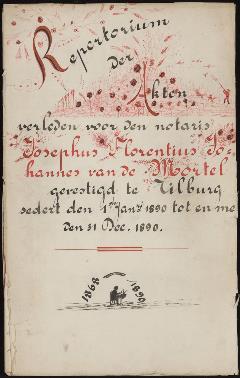 Repertorium
Der
Akten
verleden voor den notaris
Josephus Florentius Jo-
hannes van de Mortel
gevestigd te Tilburg
sedert den 1 Jan: 1890 tot en me
den 31 Dec. 1890.
1868 1890